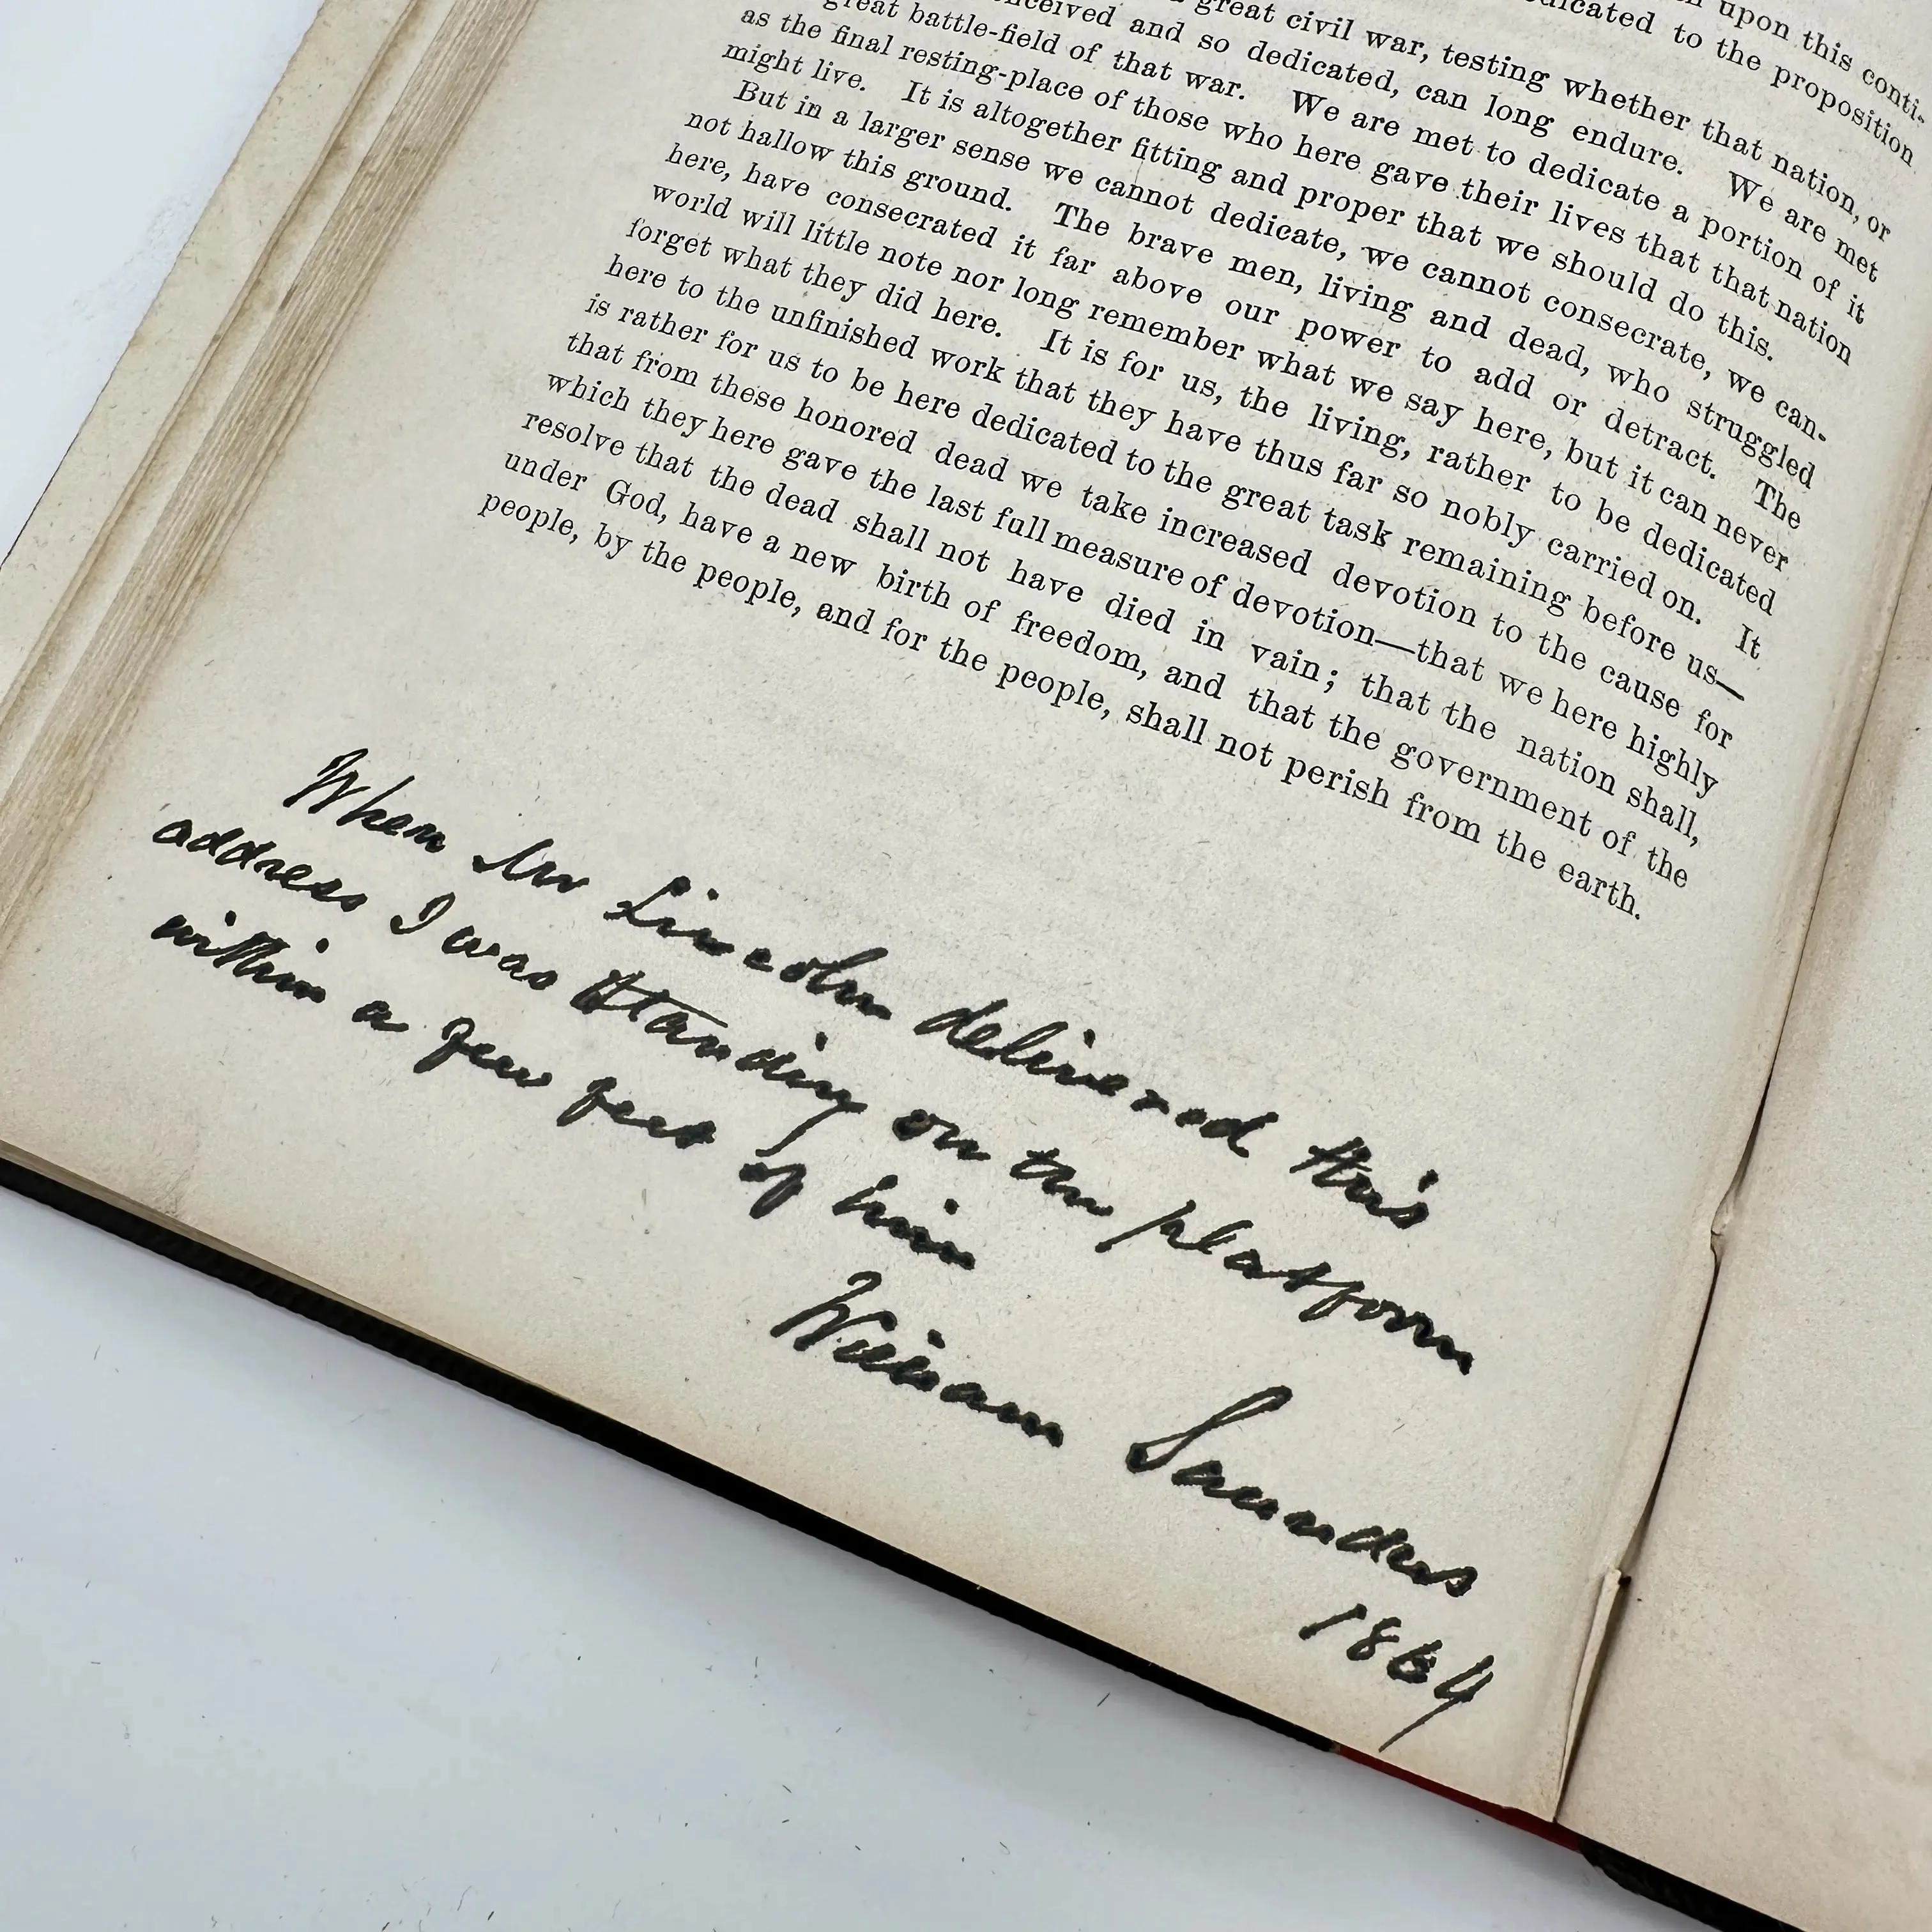 upon this conti-
dedicated to the proposition
great civil war, testing whether that nation, or
and so dedicated, can long endure. We are met
great battle-field of that war. We are met to dedicate a portion of it
as the final resting-place of those who here gave their lives that that nation
might live. It is altogether fitting and proper that we should do this.
But in a larger sense we cannot dedicate, we cannot consecrate, we can-
not hallow this ground. The brave men, living and dead, who struggled
here, have consecrated it far above our power to add or detract. The
world will little note nor long remember what we say here, but it can never
forget what they did here. It is for us, the living, rather to be dedicated
here to the unfinished work that they have thus far so nobly carried on. It
is rather for us to be here dedicated to the great task remaining before us—
that from these honored dead we take increased devotion to the cause for
which they here gave the last full measure of devotion—that we here highly
resolve that the dead shall not have died in vain; that the nation shall,
under God, have a new birth of freedom, and that the government of the
people, by the people, and for the people, shall not perish from the earth.
When Mr Lincoln delivered this
address I was standing on the platform
within a few feet of him
William Saunders
1864